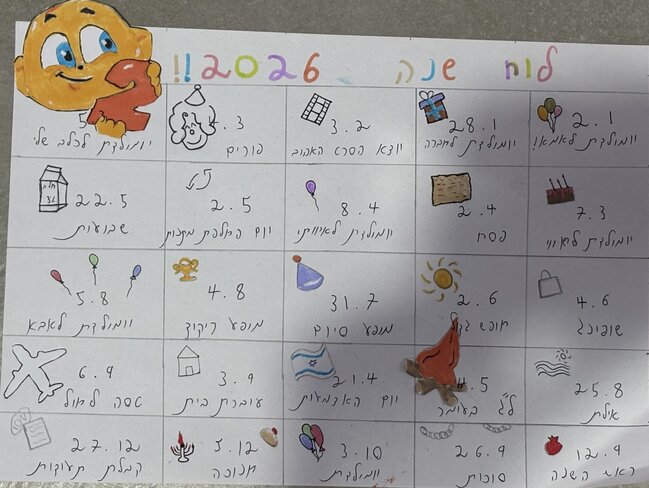 לוח שנה 2026!!
2
2.1
יומולדת לאמא!
28.1
יומולדת לחברה
3.2
יוצא הסרט האהוב
3.
פורים
יומולדת לכלב שלי
7.3
יומולדת
2.4
פסח
8.4
יומולדת
2.5
יום החלפת
חלב
22.5
שבועות
4.6
שופינג
2.6
חופש
31.7
מופע סיום
4.8
מופע ריקוד
5.8
יומולדת לאבא
25.8
אילת
.5
לג בעומר
21.4
יום האצמעות
3.9
עוברת בית
6.9
טסה לחול
12.9
ראש השנה
26.9
סוכות
3.10
יומולדת
5.12
חנוכה
100
27.12
קבלת תעודות